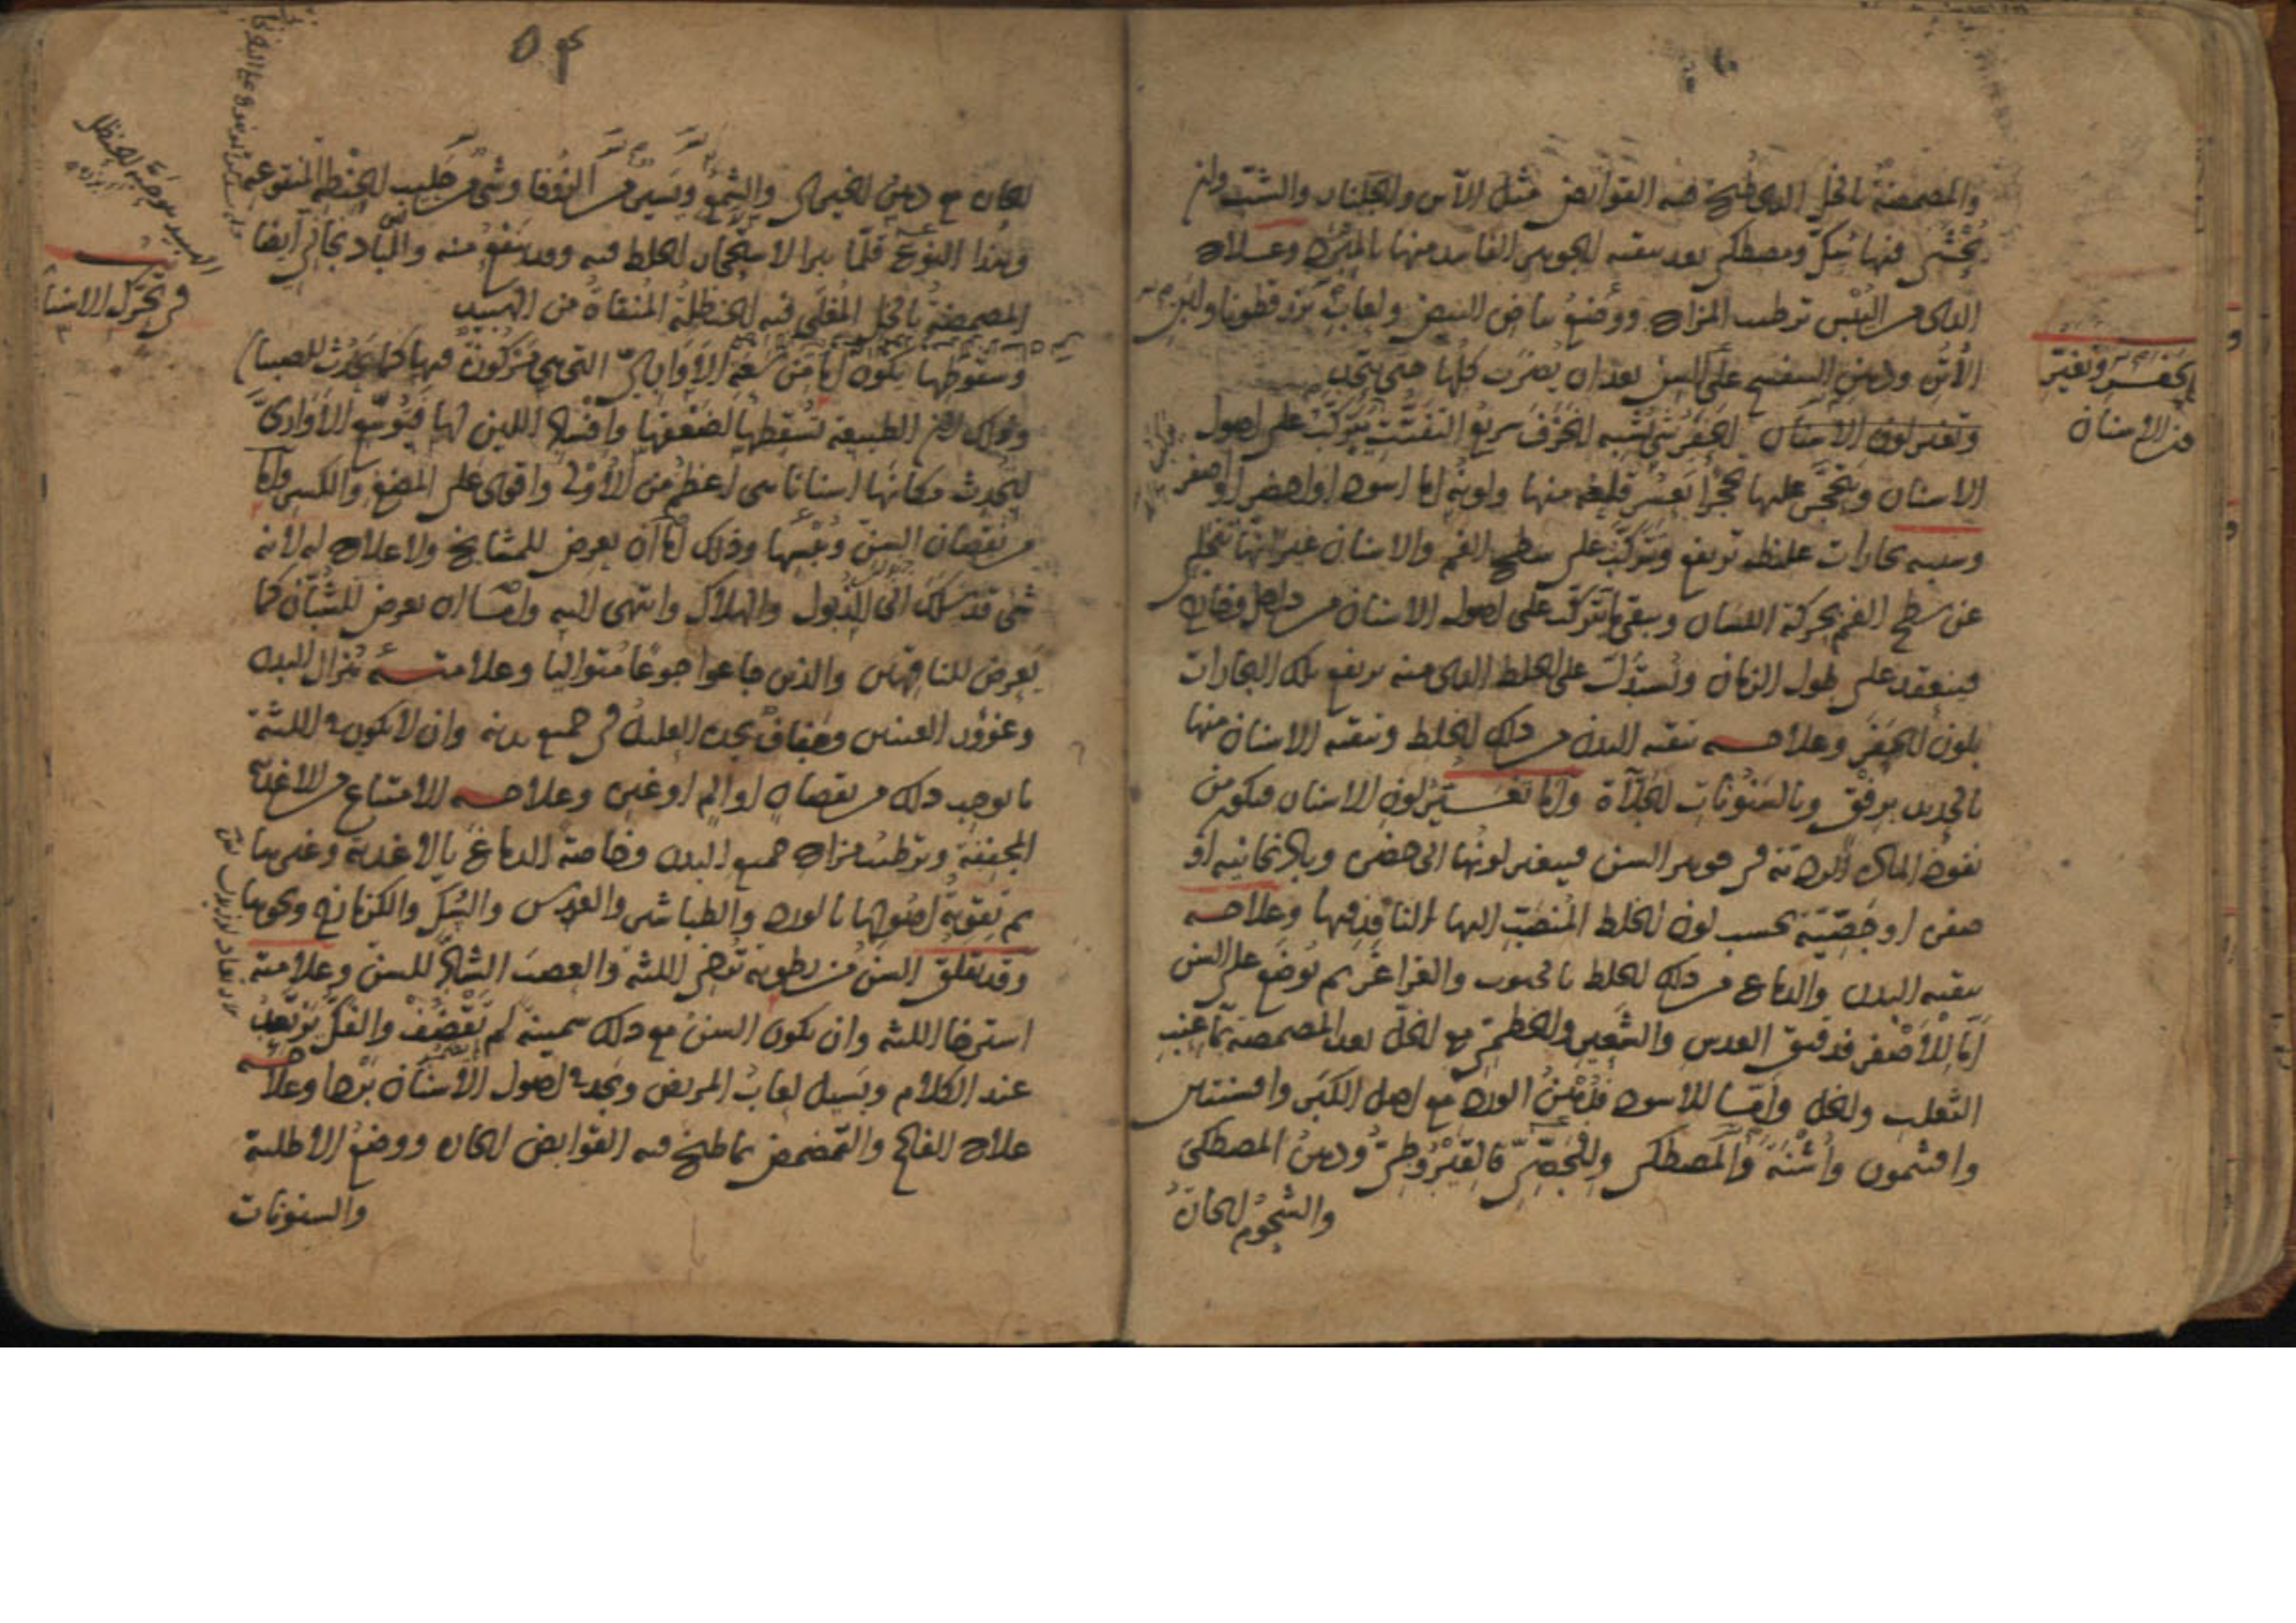 والمضمضة بالخل الذي طبخ فيه القوابض مثل الآس والجلنار والشب وان
يحشى فيها سك ومصطكى بعد تنقية الجوهر الفاسد منها بالمبرد وعلاج
الذي من اليبس ترطيب المزاج ووضع بياض البيض ولعاب بزرقطونا ولبن
الأتن ودهن البنفسج على السن بعد ان يضرب كلها حتى يتحد
وتغير لون الاسنان الحفر شيء يشبه الخزف سريع التفتت يتركب على اصول
الاسنان ويتحجر عليها تحجرا يعسر قلعه منها ولونه اما اسود او اخضر او اصفر
وسببه بخارات غليظة ترتفع وتتركب على سطح الفم والاسنان غير انها تتحلل
عن سطح الفم بحركة اللسان ويبقى ما تتركب على اصول الاسنان من داخل وخارج
فينعقد على طول الزمان ويستدل على الخلط الذي منه يرتفع تلك البخارات
بلون الحفر وعلاجه تنقية البدن من ذلك الخلط وتنقية الاسنان منها
بالحديد برفق وبالسنونات الجلاءة واما تغير لون الاسنان فيكون من
نفوذ المادة الردئة في جوهر السن فيتغير لونها الى خضرة وباذنجانية او
صفرة او جصية بحسب لون الخلط المنصب اليها النافذ فيها وعلاجه
تنقية البدن والدماغ من ذلك الخلط بالحبوب والغراغر ثم يوضع على السن
اما للأصفر فدقيق العدس والشعير والخطمي مع الخل بعد المضمضة بماء عنب
الثعلب والخل واما للاسود فدهن الورد مع اصل الكبر وافسنتين
وافتيمون واشنة والمصطكى وللجصي فالقيروطي ودهن المصطكى
والشحوم الحارة
الحفر وتغير
لون الاسنان
الحارة مع دهن الخيري والشمع ويسير من الزوفا وشيء من حليب الحنطة المنقوعة
وهذا النوع قلما يبرأ لاستحجار الخلط فيه وقد ينفع منه والمباد بخار ايضا
المضمضة بالخل المغلى فيه الحنظلة المنقاة من الهبيد
وسقوطها يكون اما من سعة الاواري التي هي مركوزة فيها كما يحدث للصبيان
وذلك لان الطبيعة تسقطها لضعفها وافساد اللبن لها فتوسع الأواري
ليحدث مكانها اسنانا هي اعظم من الأولى واقوى على المضغ والكسر واما
من نقصان السن ويبسها وذلك اما ان يعرض للمشايخ ولا علاج له لانه
شيء قد سلك الى الذبول والهلاك وانتهى اليه واما ان يعرض للشبان كما
يعرض للناقهين والذين جاعوا جوعا متواليا وعلامته هزال البدن
وغؤور العينين وجفاف يجده العليل في جميع بدنه وان لا يكون باللثة
ما يوجب ذلك من نقصان او الم او غيره وعلاجه الامتناع من الاغذية
المجففة وترطيب مزاج جميع البدن وخاصة الدماغ بالاغذية وغيرها
ثم تقوية اصولها بالورد والطباشير والعدس والسك والكزمازج ونحوها
وقد تقلق السن من رطوبة ترخي اللثة والعصب الشاد للسن وعلامته
استرخاء اللثة وان يكون السن مع ذلك سمينة لم تقضف والفك يرتعد
عند الكلام ويسيل لعاب المريض ويجد في اصول الأسنان بردا وعلاجه
علاج الفالج والتمضمض بما طبخ فيه القوابض الحارة ووضع الأطلية
والسنونات
الهبيد هو حبة الحنظل
في تحرك الاسنان